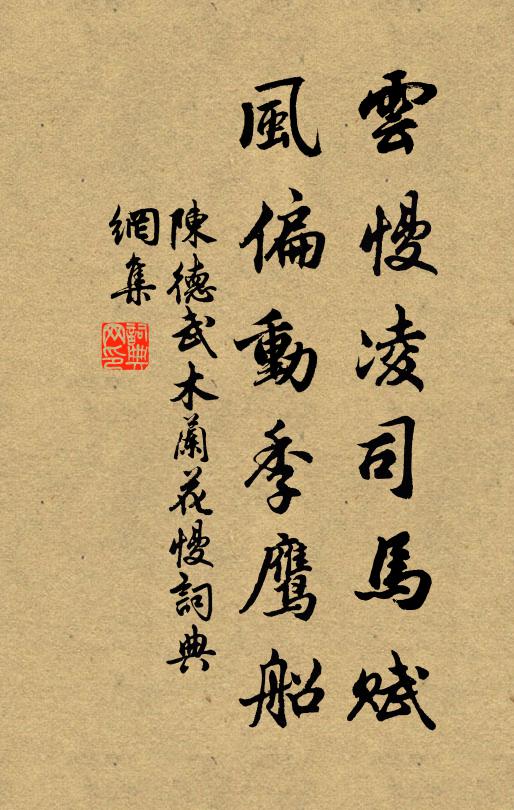 雲慢凌司馬賦
風偏動季鷹船
陳德武木蘭花慢詞典
網集
詞典
网印